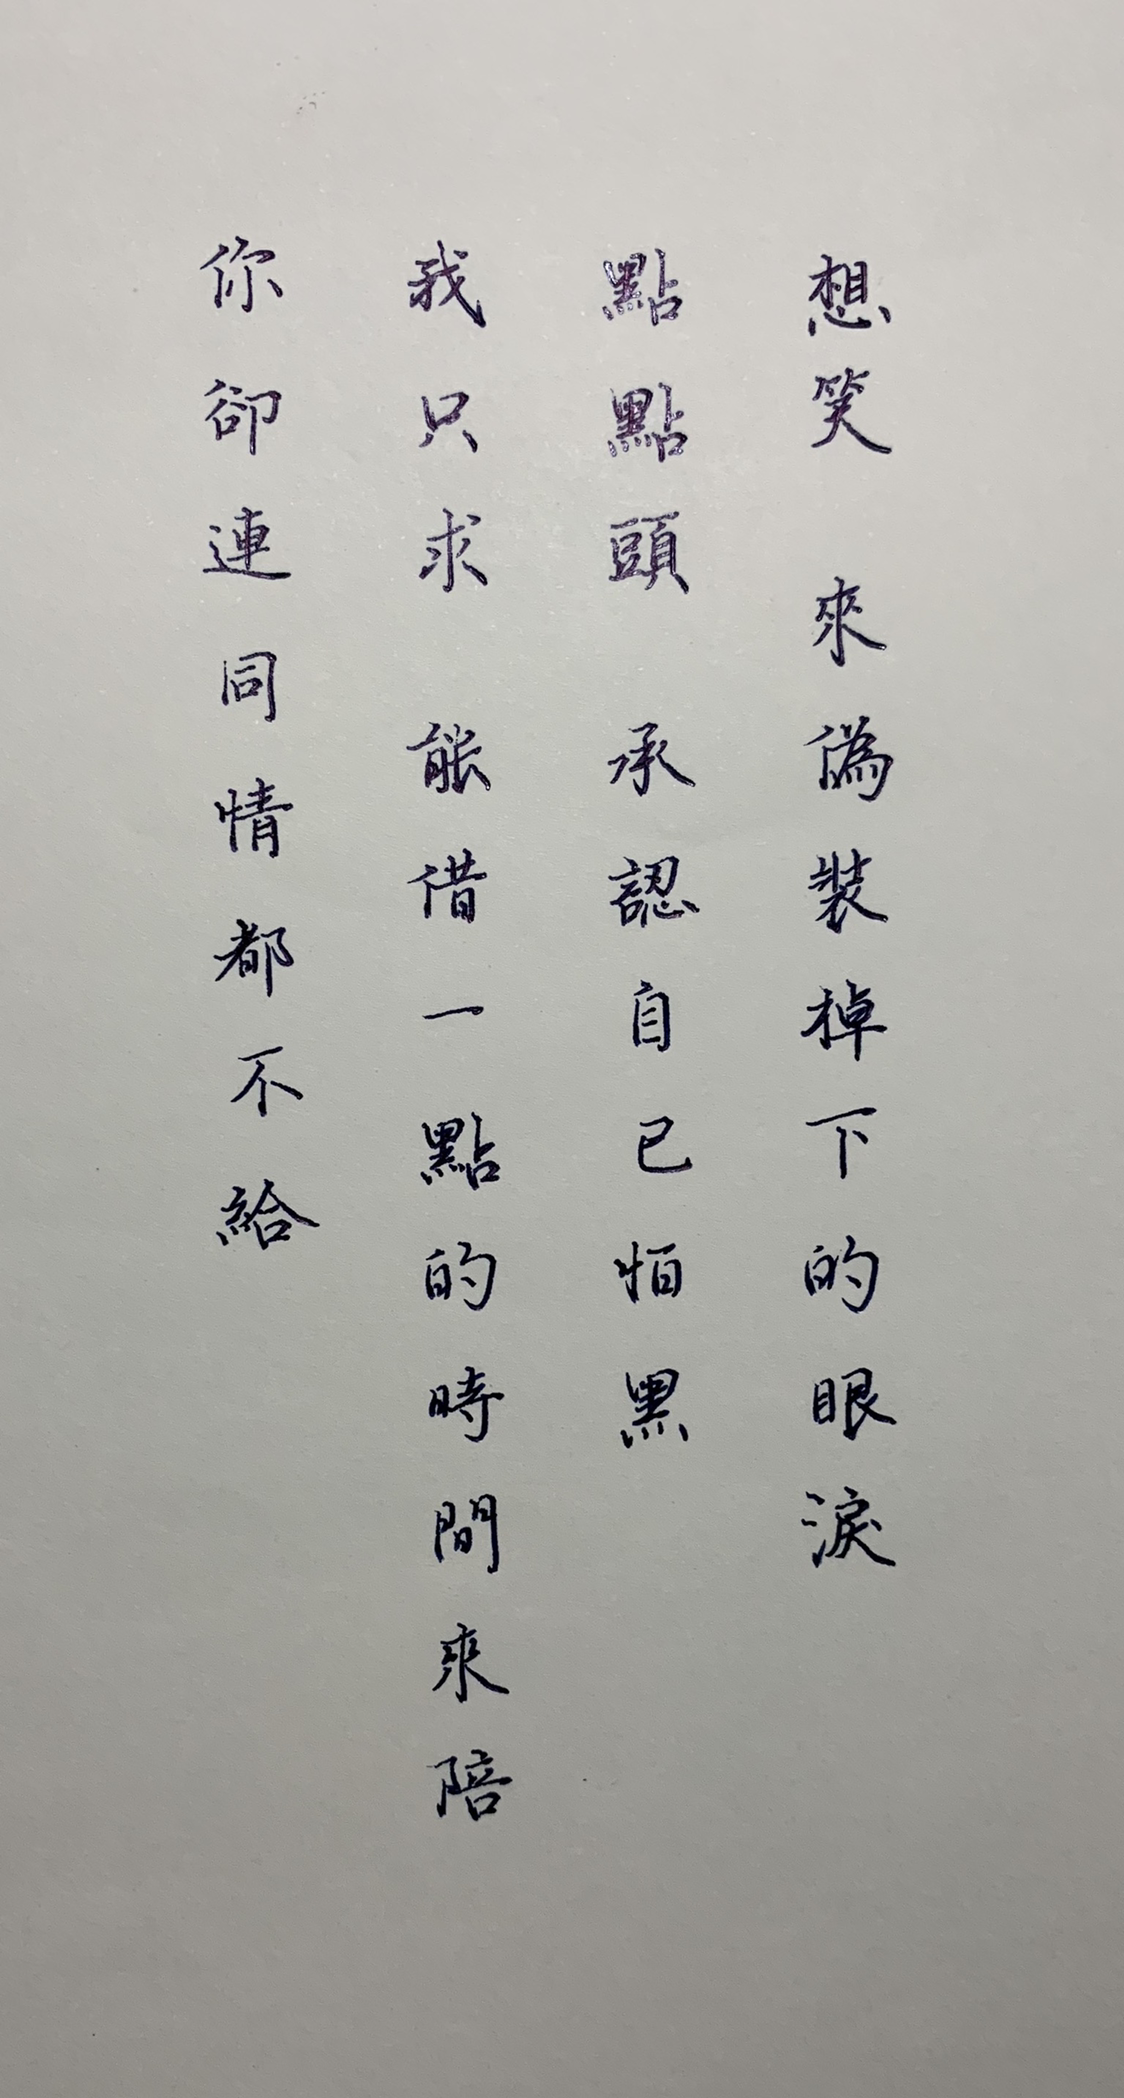 想笑 來偽裝掉下的眼淚
點點頭 承認自己怕黑
我只求 能借一點的時間來陪
你卻連同情都不給